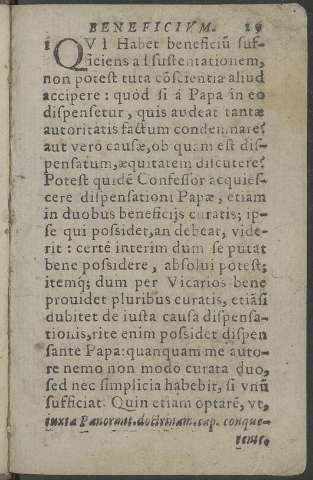 BENEFICIVM. 29
1 QVI Habet beneficiũ suf-
ficiens ad sustentationem,
non potest tuta cõscientia aliud
accipere: quod si á Papa in eo
dispensetur, quis audeat tantæ
autoritatis factum condemnare?
aut verò causæ, ob quam est dis-
pensatum, æquitatem discutere?
Potest quidẽ Confessor acquies-
cere dispensationi Papæ, etiàm
in duobus beneficijs curatis; ip-
se qui possidet, an debeat, vide-
rit: certè interim dum se putat
bene possidere, absolui potest;
itemq; dum per Vicarios bene
prouidet pluribus curatis, etiãsi
dubitet de iusta causa dispensa-
tionis, rite enim possidet dispen
sante Papa: quanquam me auto-
re nemo non modo curata duo,
sed nec simplicia habebit, si vnũ
sufficiat. Quin etiam optarẽ, vt,
iuxta Panormt. doctrinam. cap. conque-
rente.